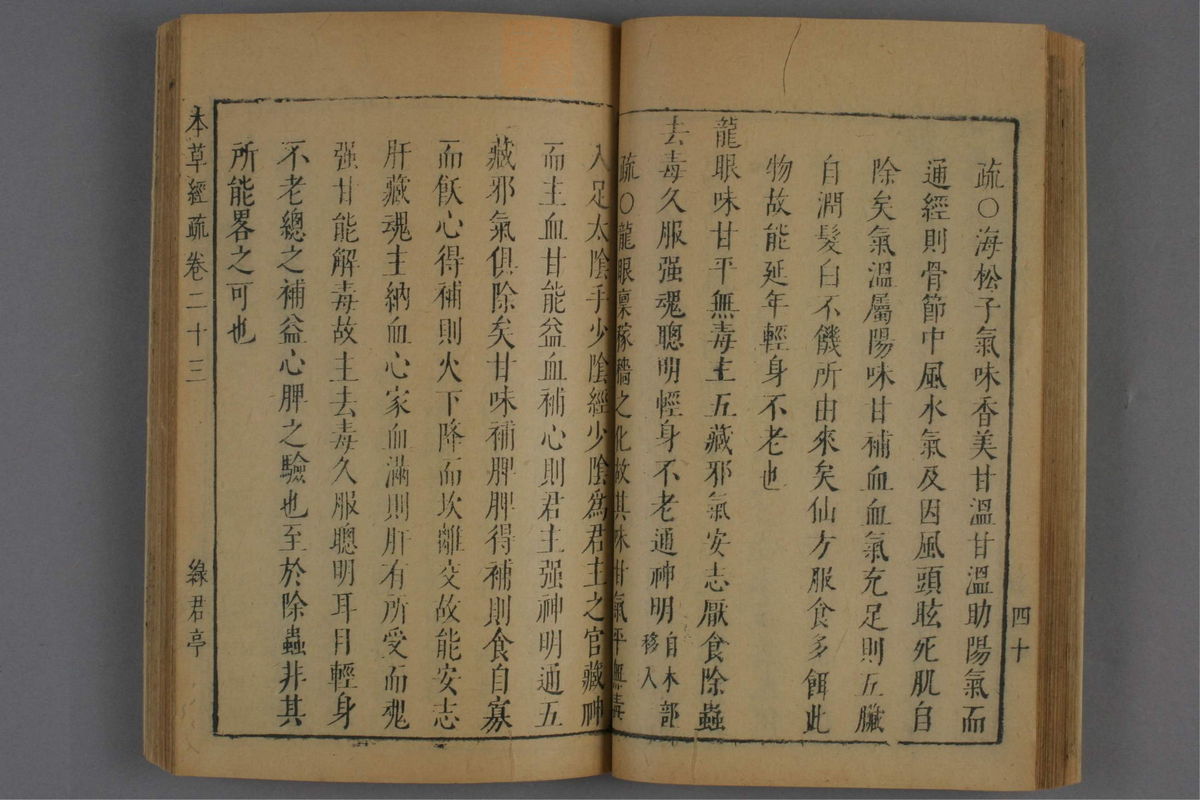 疏○海松子氣味香美甘溫甘溫助陽氣而
通經則骨節中風水氣及因風頭眩死肌自
除矣氣溫屬陽味甘補血血氣充足則五臟
自潤髮白不饑所由來矣仙方服食多餌此
物故能延年輕身不老也
龍眼味甘平無毒主五藏邪氣安志厭食除蟲
去毒久服强魂聰明輕身不老通神明自木部
移入
疏○龍眼稟稼穡之化故其味甘氣平無毒
四十
入足太陰手少陰經少陰爲君主之官藏神
而主血甘能益血補心則君主强神明通五
藏邪氣俱除矣甘味補脾脾得補則食自寡
而飫心得補則火下降而坎離交故能安志
肝藏魂主納血心家血滿則肝有所受而魂
强甘能解毒故主去毒久服聰明耳目輕身
不老總之補益心脾之驗也至於除蟲非其
所能畧之可也
本草經疏卷二十三
綠君亭